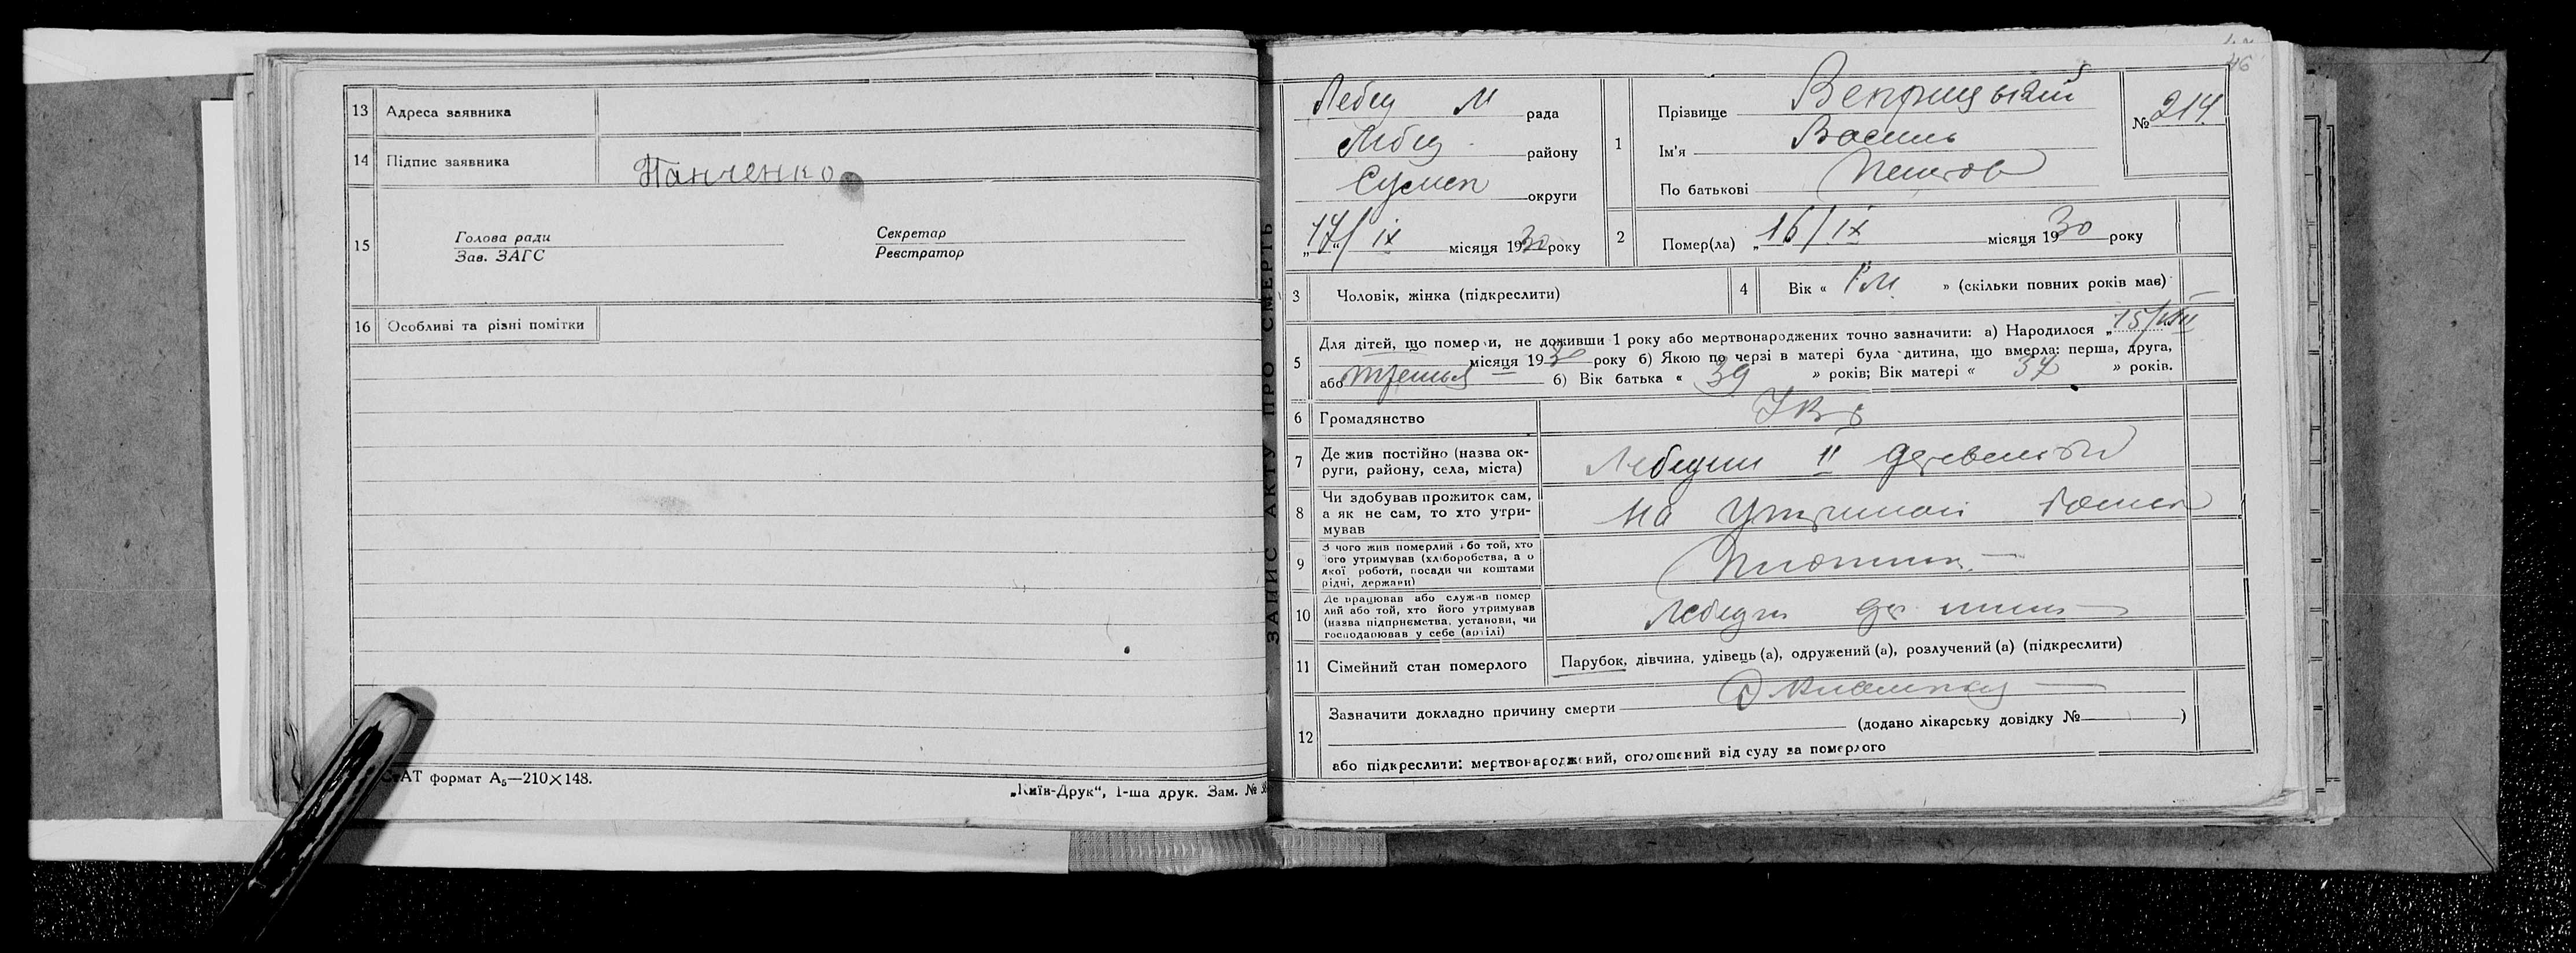 13 Адреса заявника
14 Підпис заявника Панченко
15 Голова ради Секретар
Зав. ЗАГС Реєстратор
16 Особливі та різні помітки
формат А5—210×148.
„Київ-Друк“, 1-ша друк. Зам. №
ЗАПИС АКТУ ПРО СМЕРТЬ
46
Лебед М рада
Лебед. району
Сумск округи
„17/IX місяця 1930 року
1 Прізвище
Ім'я Василь
По батькові Петров
№ 214
2 Помер(ла) „16/IX місяця 1930 року
3 Чоловік, жінка (підкреслити)
4 Вік « 1 м » (скільки повних років мав)
5 Для дітей, що померли, не доживши 1 року або мертвонароджених точно зазначити: а) Народилося „15/VIII
місяця 1930 року б) Якою по черзі в матері була дитина, що вмерла: перша, друга,
або третья б) Вік батька « 39 » років; Вік матері « 37 » років.
6 Громадянство
7 Де жив постійно (назва ок-
руги, району, села, міста) Лебедин II
8 Чи здобував прожиток сам,
а як не сам, то хто утри-
мував на
9 З чого жив померлий або той, хто
його утримував (хліборобства, а о
якої роботи, посади чи коштами
рідні, держави)
10 Де працював або служив помер
лий або той, хто його утримував
(назва підприємства, установи, чи
господарював у себе (артілі) Лебедин
11 Сімейний стан померлого Парубок, дівчина, удівець (а), одружений (а), розлучений (а) (підкреслити)
12 Зазначити докладно причину смерти
(додано лікарську довідку № )
або підкреслити: мертвонароджений, оголошений від суду за померлого